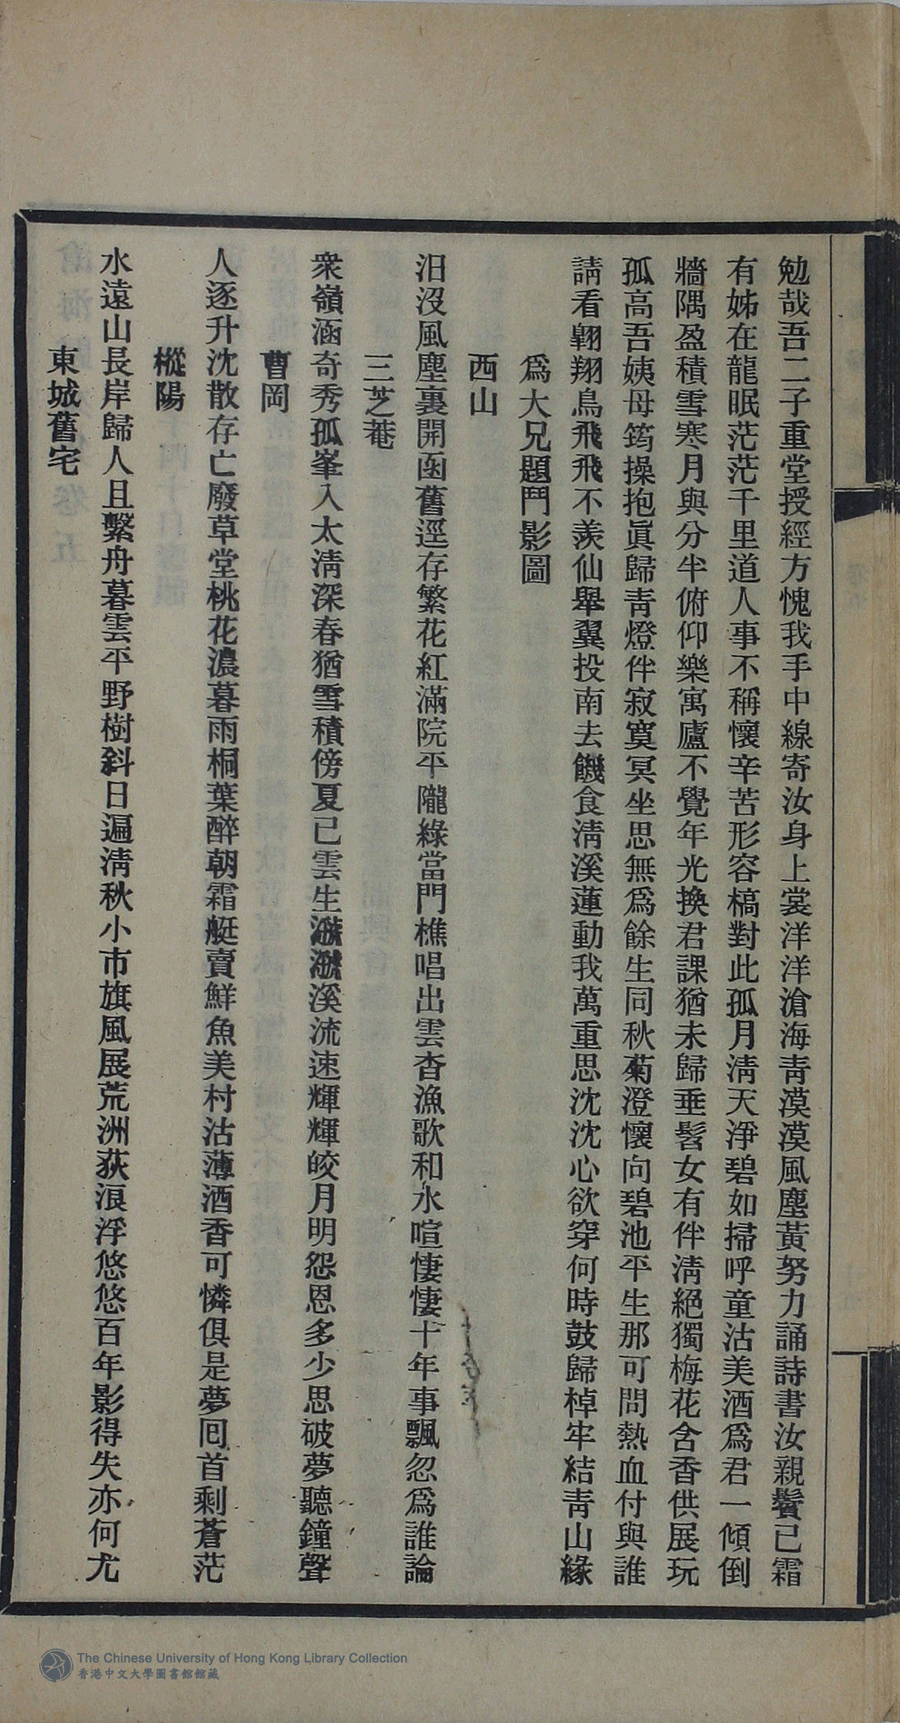 勉哉吾二子重堂授經方愧我手中線寄汝身上裳洋洋滄海靑漠漠風塵黃努力誦詩書汝親鬢已霜
有姊在龍眠茫茫千里道人事不稱懷辛苦形容槁對此孤月淸天淨碧如掃呼童沽美酒爲君一傾倒
牆隅盈積雪寒月與分半俯仰樂寓廬不覺年光換君課猶未歸垂髫女有伴淸絕獨梅花含香供展玩
孤高吾姨母筠操抱眞歸靑燈伴寂寞冥坐思無爲餘生同秋菊澄懷向碧池平生那可問熱血付與誰
請看翺翔鳥飛飛不羨仙舉翼投南去饑食淸溪蓮動我萬重思沈沈心欲穿何時鼓歸棹牢結靑山緣
爲大兄題鬥影圖
西山
汨沒風塵裏開函舊逕存繁花紅滿院平隴綠當門樵唱出雲杳漁歌和水喧悽悽十年事飄忽爲誰論
三芝菴
衆嶺涵奇秀孤峯入太淸深春猶雪積傍夏已雲生濺濺溪流速輝輝皎月明怨恩多少思破夢聽鐘聲
曹岡
人逐升沈散存亡廢草堂桃花濃暮雨桐葉醉朝霜艇賣鮮魚美村沽薄酒香可憐俱是夢囘首剩蒼茫
樅陽
水遠山長岸歸人且繫舟暮雲平野樹斜日遍淸秋小市旗風展荒洲荻浪浮悠悠百年影得失亦何尤
東城舊宅
The Chinese University of Hong Kong Library Collection
香港中文大學圖書館館藏